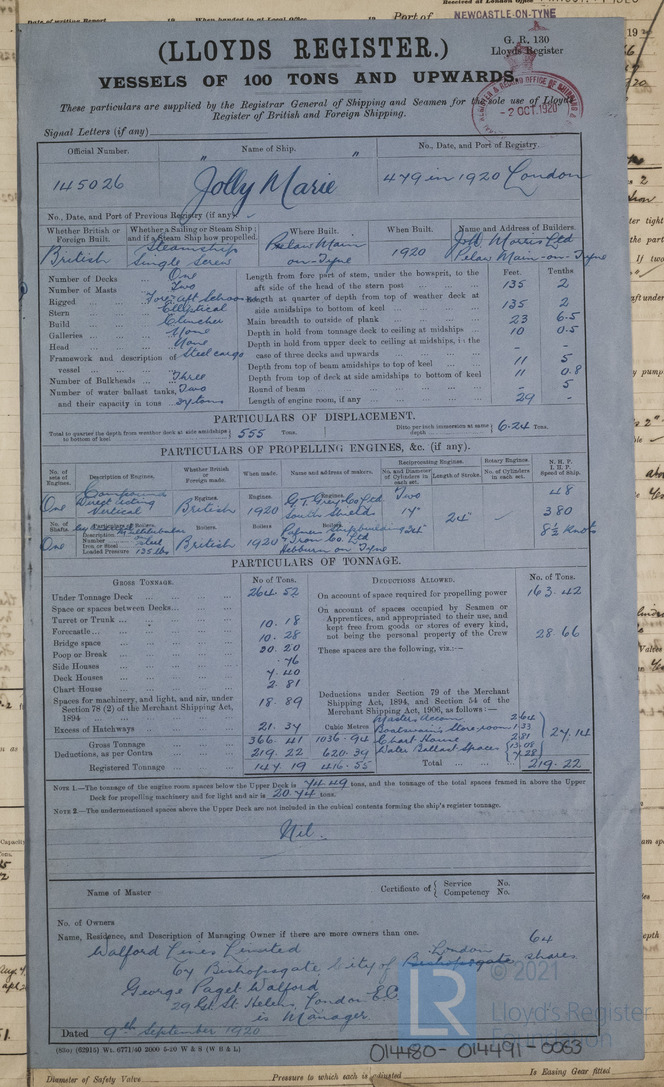 Date of writing Report
When handed in at Local Office
Port of NEWCASTLE-ON-TYNE
(LLOYDS REGISTER.)
G. R. 130
Lloyds Register
VESSELS OF 100 TONS AND UPWARDS.
These particulars are supplied by the Registrar General of Shipping and Seamen for the sole use of Lloyds
Register of British and Foreign Shipping.
- 2 OCT. 1920
Signal Letters (if any)
Official Number. Name of Ship. No., Date, and Port of Registry.
145026 "Jolly Marie" 479 in 1920 London
No., Date, and Port of Previous Registry (if any)
Whether British or Foreign Built. Whether a Sailing or Steam Ship; and if a Steam Ship how propelled. Where Built. When Built. Name and Address of Builders.
British Steamship Single Screw Pelaw Main on-Tyne 1920 Joh Morris Ltd Pelaw Main-on-Tyne
Feet. Tenths
Number of Decks One
Number of Masts Two
Rigged Fore & aft Schooner
Stern Elliptical
Build Clincher
Galleries None
Head None
Framework and description of vessel Steel cargo
Number of Bulkheads Three
Number of water ballast tanks, Two
and their capacity in tons 27 tons
Length from fore part of stem, under the bowsprit, to the
aft side of the head of the stern post 135 2
Length at quarter of depth from top of weather deck at
side amidships to bottom of keel 135 2
Main breadth to outside of plank 23 6.5
Depth in hold from tonnage deck to ceiling at midships 10 0.5
Depth in hold from upper deck to ceiling at midships, in the
case of three decks and upwards - -
Depth from top of beam amidships to top of keel 11 5
Depth from top of deck at side amidships to bottom of keel 11 0.8
Round of beam - 5
Length of engine room, if any 29 -
PARTICULARS OF DISPLACEMENT.
Total to quarter the depth from weather deck at side amidships to bottom of keel 555 Tons. Ditto per inch immersion at same depth 6.24 Tons.
PARTICULARS OF PROPELLING ENGINES, &c. (if any).
No. of sets of Engines. Description of Engines. Whether British or Foreign made. When made. Name and address of makers. Reciprocating Engines. No. and Diameter of Cylinders in each set. Length of Stroke. Rotary Engines. No. of Cylinders in each set. N. H. P. I. H. P. Speed of Ship.
One Compound Direct Acting Vertical
Engines. British
Engines. 1920
Engines. G. T. Grey Co Ltd South Shields
Two 17" 24"
48
380
8½ Knots
No. of Shafts. One
Number
Iron or Steel Steel
Loaded Pressure 125 lbs
Boilers. British
Boilers. 1920
Boilers. Palmer Shipbuilding & Iron Co. Ltd Hebburn on Tyne
PARTICULARS OF TONNAGE.
GROSS TONNAGE. No of Tons. DEDUCTIONS ALLOWED. No. of Tons.
Under Tonnage Deck 264.52
Space or spaces between Decks
Turret or Trunk 10.18
Forecastle 10.28
Bridge space
Poop or Break 30.20
Side Houses .76
Deck Houses 7.40
Chart House 2.81
Spaces for machinery, and light, and air, under
Section 78 (2) of the Merchant Shipping Act,
1894 18.89
Excess of Hatchways 21.37
Cubic Metres
Gross Tonnage 366.41 1036.94
Deductions, as per Contra 219.22 620.39
Registered Tonnage 147.19 416.55
On account of space required for propelling power 163.42
On account of spaces occupied by Seamen or
Apprentices, and appropriated to their use, and
kept free from goods or stores of every kind,
not being the personal property of the Crew 28.66
These spaces are the following, viz:—
Deductions under Section 79 of the Merchant
Shipping Act, 1894, and Section 54 of the
Merchant Shipping Act, 1906, as follows:—
Masters Accom 2.64
Boatswain's Store room 1.33
Chart House 2.81
Water Ballast Spaces 13.08
7.28
27.14
Total 219.22
NOTE 1.—The tonnage of the engine room spaces below the Upper Deck is 44.49 tons, and the tonnage of the total spaces framed in above the Upper
Deck for propelling machinery and for light and air is 20.74 tons.
NOTE 2.—The undermentioned spaces above the Upper Deck are not included in the cubical contents forming the ship's register tonnage.
Nil.
Name of Master Certificate of Service No.
Competency No.
No. of Owners
Name, Residence, and Description of Managing Owner if there are more owners than one.
Walford Lines Limited 64
London shares
64 Bishopsgate, City of
George Paget Walford
29 Gt St Helens, London E.C.
is Manager.
Dated 9th September 1920
(83o) (62915) Wt. 6771/40 2000 5-20 W & S (W B & L)
LR
© 2021
Lloyd's Register
Foundation
014480 - 014491 - 0053
Diameter of Safety Valve
Pressure to which each is adjusted
Is Easing Gear fitted